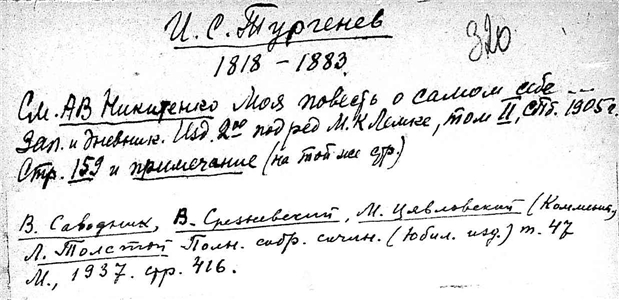 И. С. Тургенев
320
1818 – 1883.
См. АВ Никитенко Моя повесть о самом себе --
Зап. и дневник. Изд. 2ое под ред М. К Лемке, том II, СПб. 1905 г.
Стр. 159 и примечание (на той же стр.)
В. Саводник, В. Срезневский, М. Цявловский (Коммент.,
Л. Толстой Полн. собр. сочин. (Юбил. изд.) т. 47
М., 1937. стр. 416.